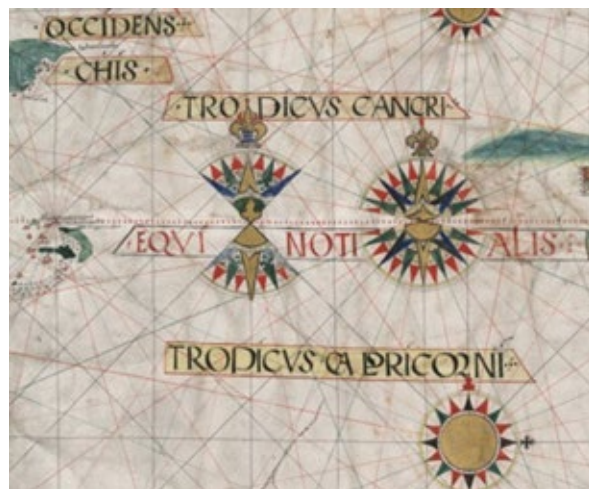 OCCIDENS
CHIS
TROPICVS CANCRI
EQVI NOTI ALIS
TROPICVS CA PRICORNI